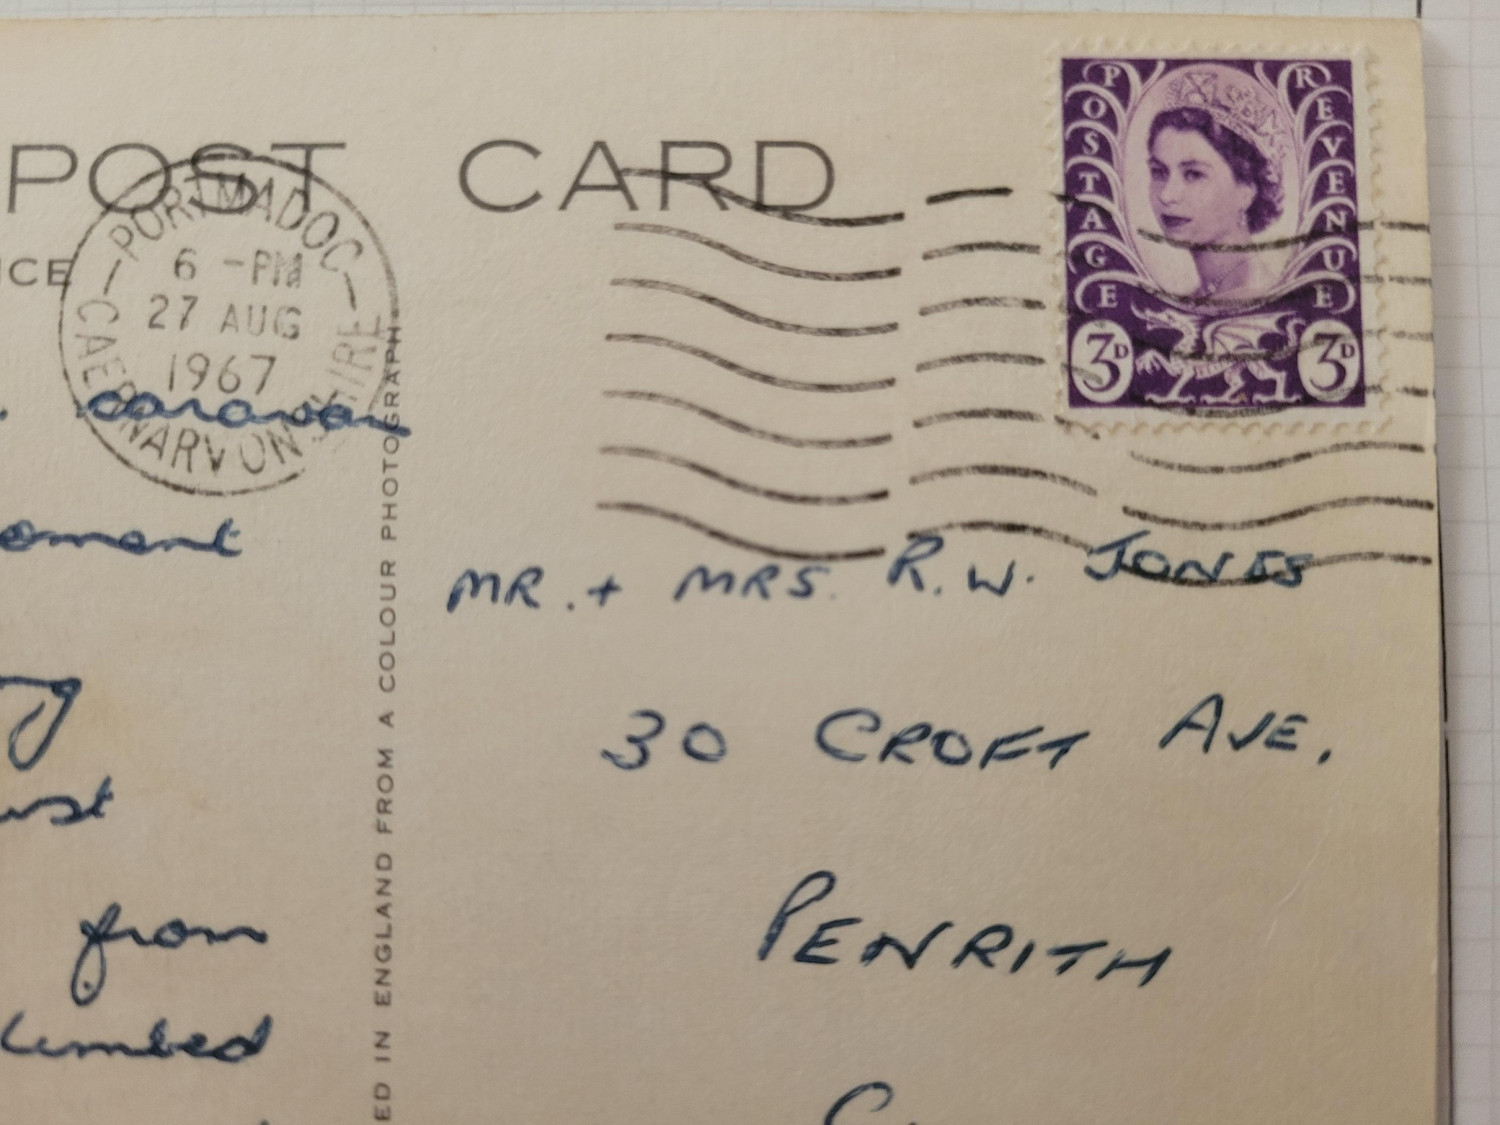 POST CARD
POSTAGE REVENUE
3D 3D
PORTMADOC
6 -PM
27 AUG
1967
CAERNARVONSHIRE
caravan
from
MR. + MRS. R.W. JONES
30 CROFT AVE.
PENRITH
ED IN ENGLAND FROM A COLOUR PHOTOGRAPH.